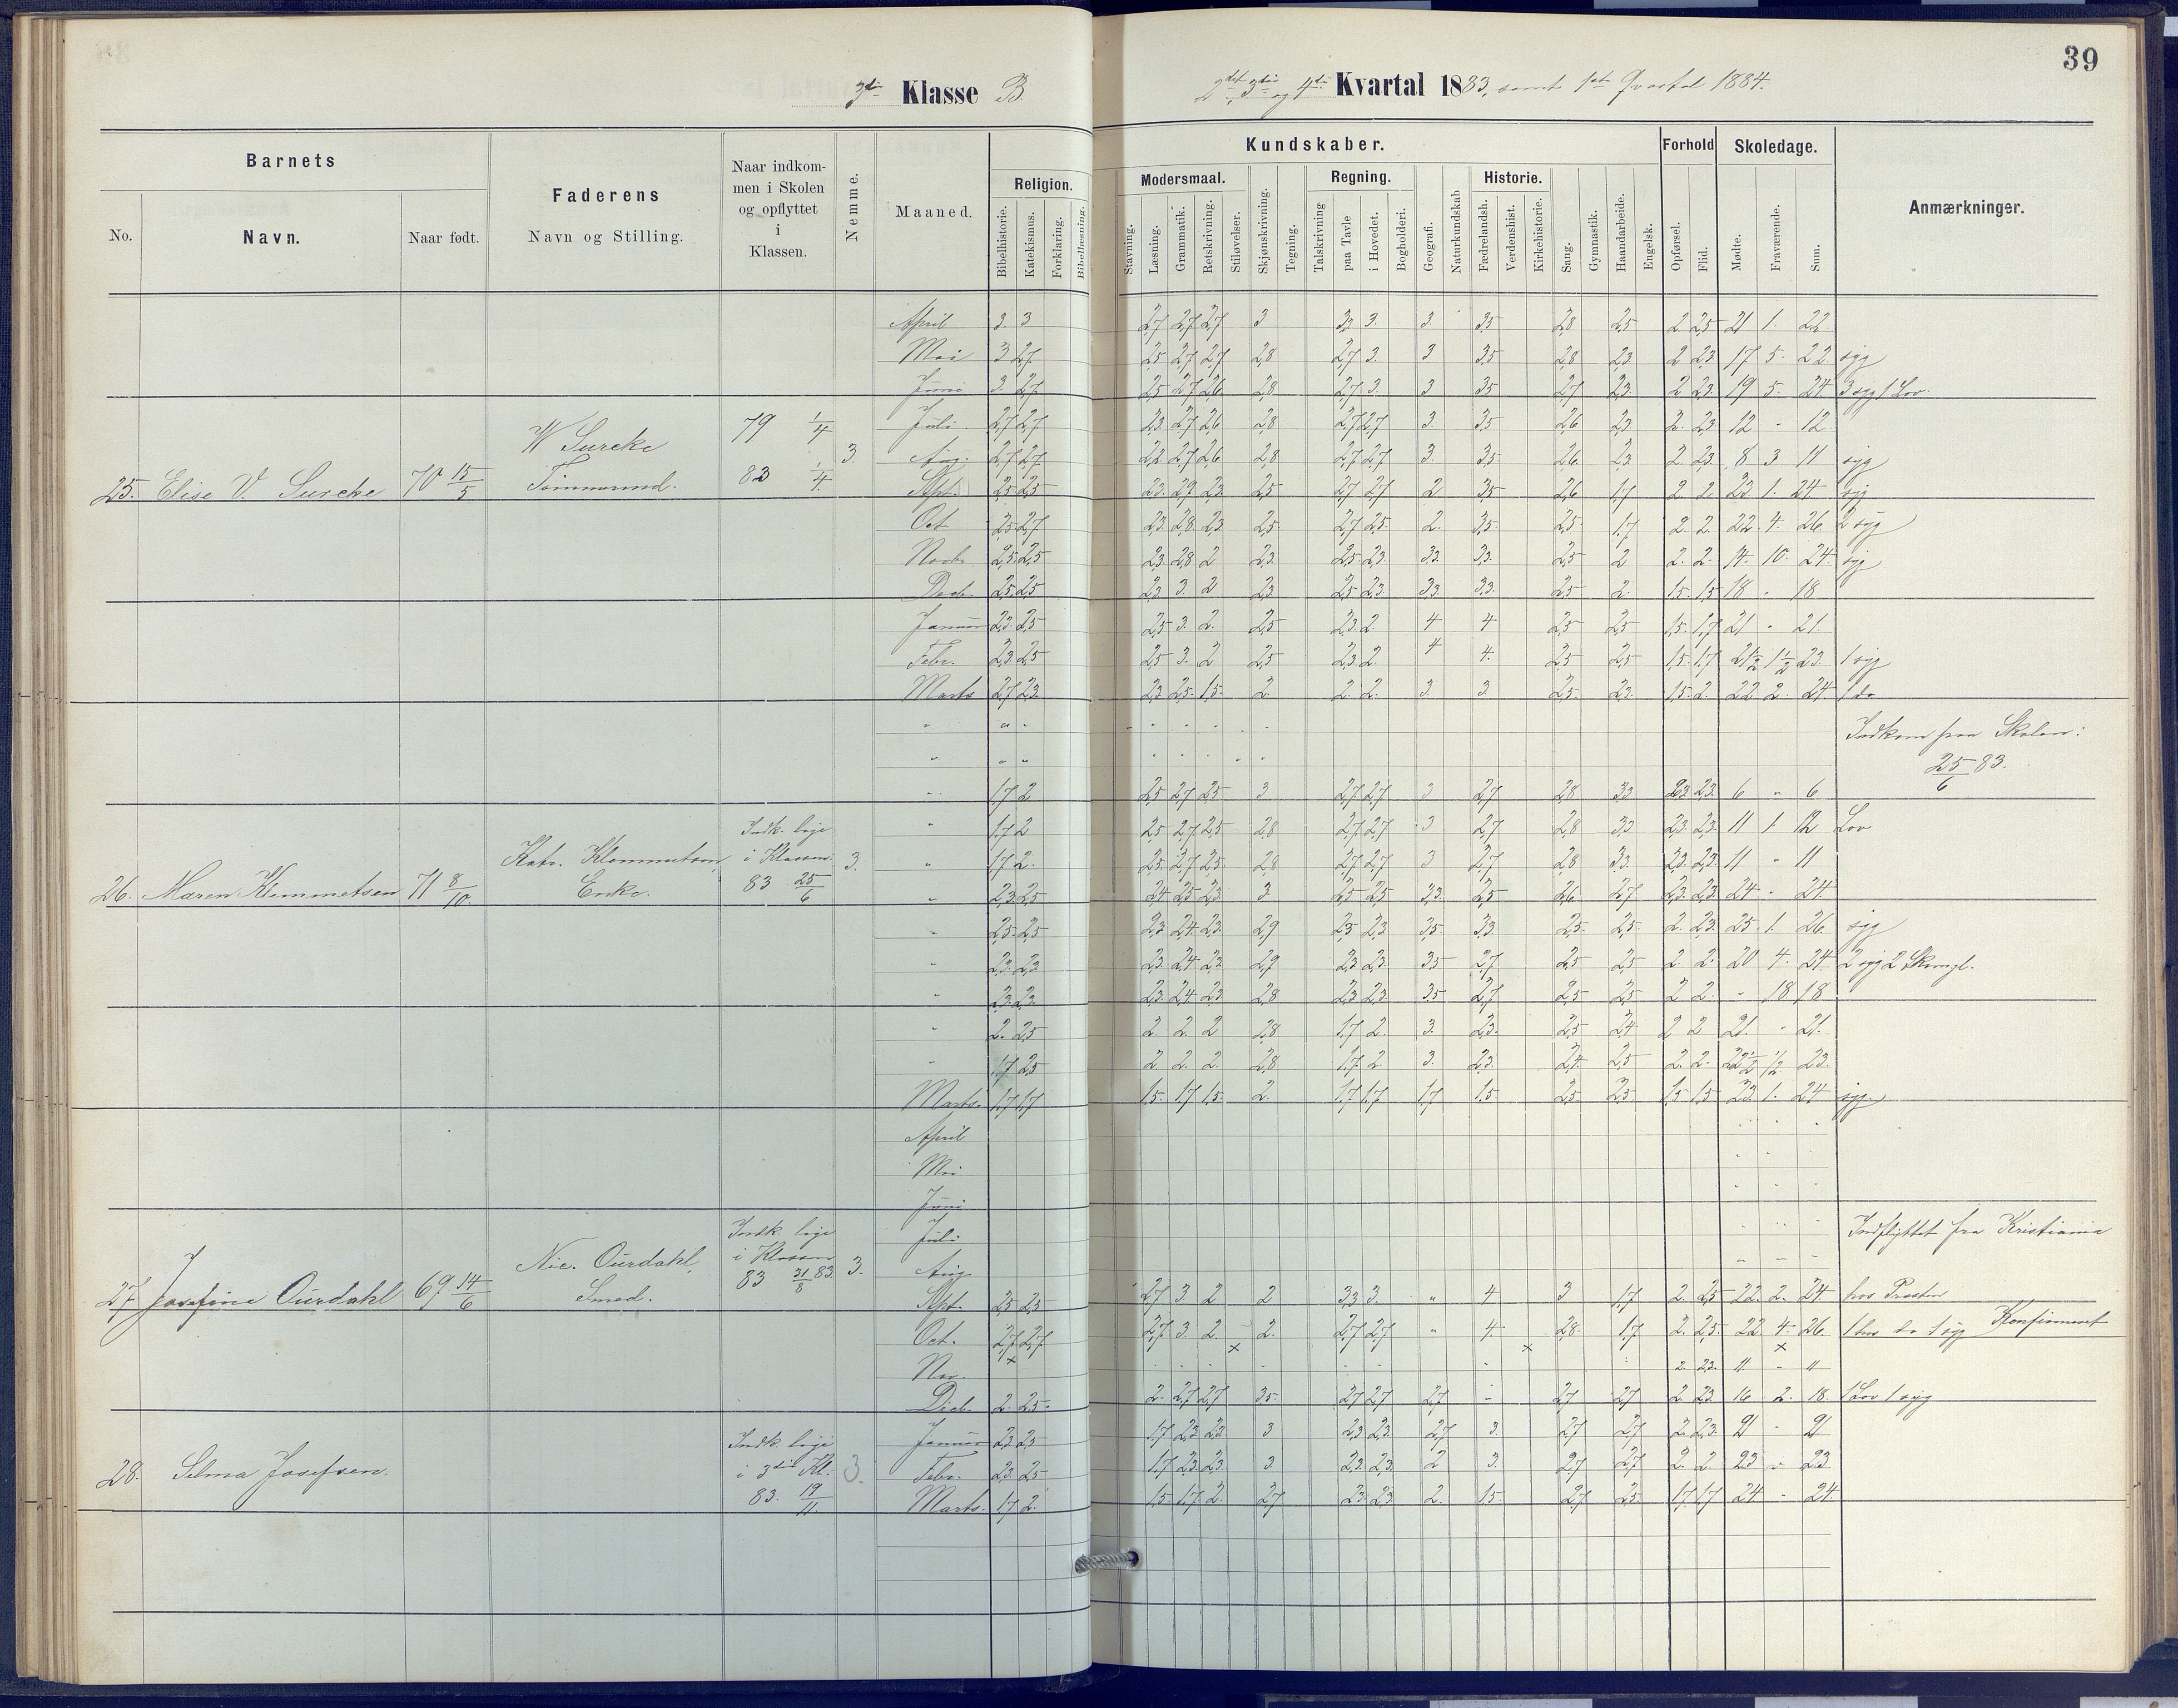 39
3die Klasse B.
2det 3die og 4de Kvartal 1883, samt 1ste Qvartal 1884.
Barnets
Faderens
Navn og Stilling.
Naar indkom-
men i Skolen
og opflyttet
i
Klassen.
Nemme.
Maaned.
No.
Navn.
Naar født.
Religion.
Bibelhistorie.
Katekismus.
Forklaring.
Bibellæsning.
Kundskaber.
Modersmaal.
Stavning.
Læsning.
Grammatik.
Retskrivning.
Stiløvelser.
Skjønskrivning.
Tegning.
Regning.
Talskrivning
paa Tavle
i Hovedet.
Bogholderi.
Geografi.
Naturkundskab
Historie.
Fædrelandsh.
Verdenshist.
Kirkehistorie.
Sang.
Gymnastik.
Haandarbeide.
Engelsk.
Forhold
Opførsel.
Flid.
Skoledage.
Mødte.
Fraværende.
Sum.
Anmærkninger.
April 3. 3 2,7 2,7 2,7 3 3,3 3. 3. 3,5 2,8 2,5 2 2,5 21 1. 22.
Mai 3 2,7 2,5 2,7 2,7 2,8 2,7 3. 3 3,5 2,8 2,3 2 2,3 17 5. 22 syg
Juni 3. 2,7 2,5 2,7 2,6 2,8 2,7 3. 3 3,5 2,7 2,3 2 2,3 19 5. 24 3 syg 1 Lov.
Juli 2,7 2,7 2,3 2,7 2,6 2,8 2,7 2,7 3. 3,5 2,6 2,3 2. 2,3 12 - 12.
Aug. 2,7 2,7 2,2 2,7 2,6 2,8 2,7 2,7 3. 3,5 2,6 2,3 2. 2,3 8 3 11 syg
25. Elise V. Surcke 70 15/5 W Surcke Tømmermd. 79 1/4 83 1/4 3
Sept. 2,5 2,5 2,3 2,9 2,3 2,5 2,7 2,7 2 3,5 2,6 1,7 2 2. 23. 1. 24. syg
Oct 2,5 2,7 2,3 2,8 2,3 2,5 2,7 2,5 2. 3,5 2,5 1,7 2. 2. 22. 4. 26. 2 syg
Novb. 2,5 2,5 2,3 2,8 2 2,3 2,5 2,3 3,3 3,3 2,5 2 2. 2. 14. 10. 24. syg
Decb. 2,5 2,5 2,3 3. 2 2,3 2,5 2,3 3,3 3,3 2,5 2. 1,5 1,5 18 - 18.
Januar 2,3 2,5 2,5 3. 2. 2,5 2,3 2. 4 4 2,5 2,5 1,5 1,7 21 - 21.
Febr. 2,3 2,5 2,5 3. 2 2,5 2,3 2. 4 4. 2,5 2,5 1,5 1,7 21 1/2 1 1/2 23. 1 syg
Marts 2,7 2,3 2,3 2,5 1,5 2. 2. 2. 3. 3 2,5 2,3 1,5 2. 22 2. 24. 1 do
Indkom paa Skolen:
25/6 83.
1,7 2 2,5 2,7 2,5 3 2,7 2,7 3 2,7 2,8 3,3 2,3 2,3 6 - 6
1,7 2 2,5 2,7 2,5 2,8 2,7 2,7 3 2,7 2,8 3,3 2,3 2,3 11 1. 12 Lov
1,7 2. 2,5 2,7 2,5 2,8 2,7 2,7 3 2,7 2,8 3,3 2,3 2,3 11 - 11
26. Maren Klemmetsen 71 8/10 Kath. Klemmetsen, Enke. Indk. lige i Klassen: 83 25/6 3.
2,3 2,5 2,4 2,5 2,3 3. 2,5 2,5 3,3 2,5 2,6 2,7 2,3 2,3 24 - 24.
2,5 2,5 2,3 2,4 2,3 2,9 2,5 2,3 3,5 3,3 2,5 2,5 2. 2,3 25 1. 26. syg
2,3 2,3 2,3 2,4 2,3 2,9 2,3 2,3 3,5 2,7 2,5 2,5 2 2. 20 4. 24.
2,3 2,3 2,3 2,4 2,3 2,8 2,3 2,3 3,5 2,7 2,5 2,5 2 2. - 18 18
2. 2,5 2. 2. 2 2,8 1,7 2. 3. 2,3 2,5 2,4 2 2 21. - 21.
1,7 2,5 2. 2. 2. 2,8 1,7 2. 3. 2,3 2,4 2,5 2. 2. 22 1/2 1/2 23.
Marts. 1,7 1,7 1,5 1,7 1,5 2. 1,7 1,7 1,7 1,5 2,5 2,5 1,5 1,5 23. 1. 24 syg.
April
Mai
Juni
Juli Indflyttet fra Kristiania
Aug
27. Josefine Ourdahl 69 14/6 Nic. Ourdahl, Smed. Indk. lige i Klassen 83 31/8 83. 3.
Sept. 2,5 2,5 2,7 3 2 2 3,3 3. " 4 3 1,7 2. 2,5 22. 2. 24 hos Præsten
Oct. 2,7 2,7 2,7 3. 2. 2. 2,7 2,7 " 4. 2,8 1,7 2. 2,5 22 4. 26. 1 hos do 1 syg Konfirmeret
Nov. 2. 2,3 11. - 11
Decb. 2. 2,5 2. 2,7 2,7 3,5 2,7 2,7 2,7 - 2,7 2,7 2 2,3 16 2. 18. 1 Lov 1 syg
Januar 2,3 2,5 1,7 2,3 2,3 3 2,3 2,3 2,7 3. 2,7 2,7 2. 2,3 21 - 21
28. Selma Josefsen. Indk. lige i 3die Kl. 83. 19/11. 3.
Febr. 2,3 2,5 1,7 2,3 2,3 3. 2,3 2,3 2 3. 2,7 2,7 2. 2. 23 - 23
Marts. 1,7 2. 1,5 1,7 2. 2,7 2,3 2,3 2. 1,5 2,7 2,5 1,7 1,7 24 - 24.